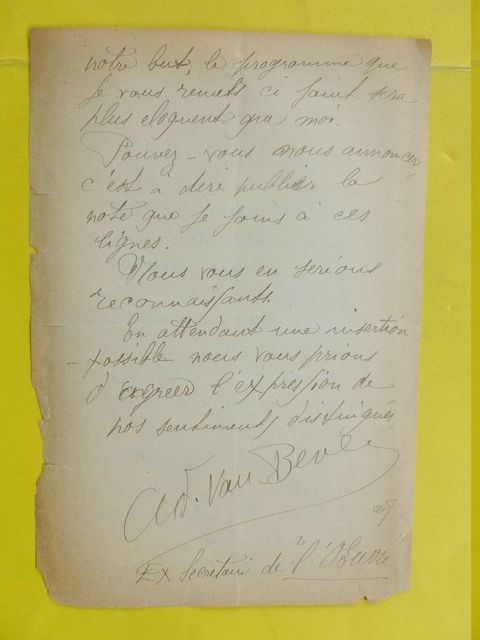 notre but, le programme que
je vous remets ci joint sera
plus eloquent que moi.
Pouvez-vous nous annoncer
c'est à dire publier la
note que je joins à ces
lignes.
Nous vous en serions
reconnaissants.
En attendant une insertion
possible nous vous prions
d'agreer l'expression de
nos sentiments distingués
Ad. Van Bever
Ex Secretaire de "l'Œuvre"